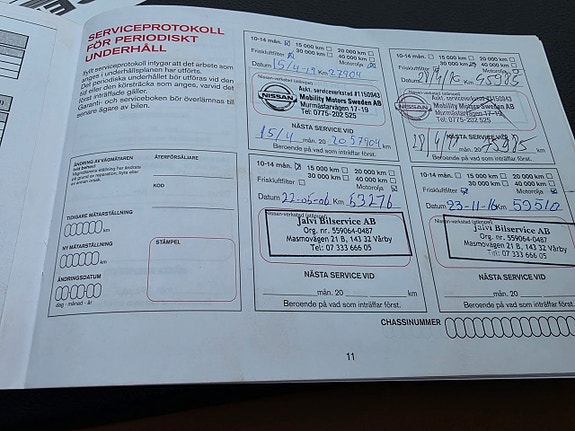 SERVICEPROTOKOLL
FÖR PERIODISKT
UNDERHÅLL
Ifyllt serviceprotokoll intygar att det arbete som
anges i underhållsplanen har utförts.
Det periodiska underhållet bör utföras vid den
tid eller den körsträcka som anges, varvid det
först inträffade gäller.
Garanti- och serviceboken bör överlämnas till
senare ägare av bilen.
ÄNDRING AV VÄGMÄTAREN
ÅTERFÖRSÄLJARE
KOD
TIDIGARE MÄTARSTÄLLNING
km
NY MÄTARSTÄLLNING
km
ÄNDRINGSDATUM
dag - månad - år
STÄMPEL
10-14 mån. 15 000 km 20 000 km
Friskluftfilter 30 000 km 40 000 km
Motorolja
Datum 15/4-19 Km 27904
Nissan-verkstad (stämpel)
NISSAN
Aukt. serviceverkstad #1150943
Mobility Motors Sweden AB
Murmästarvägen 17-19
Tel: 0775-202 525
NÄSTA SERVICE VID
15/4 mån. 20
Beroende på vad som inträffar först.
10-14 mån. 15 000 km 20 000 km
Friskluftfilter 30 000 km 40 000 km
Motorolja
Datum Km
NISSAN
Aukt. serviceverkstad #1150943
Mobility Motors Sweden AB
Murmästarvägen 17-19
Tel: 0775-202 525
NÄSTA SERVICE VID
mån. 20
Beroende på vad som inträffar först.
10-14 mån. 15 000 km 20 000 km
Friskluftfilter 30 000 km 40 000 km
Motorolja
Datum 22-05-06 Km 63276
Nissan-verkstad (stämpel)
Jalvi Bilservice AB
Org. nr. 559064-0487
Masmovägen 21 B, 143 32 Vårby
Tel: 07 333 666 05
NÄSTA SERVICE VID
mån. 20 km
Beroende på vad som inträffar först.
10-14 mån. 15 000 km 20 000 km
Friskluftfilter 30 000 km 40 000 km
Motorolja
Datum 23-11-16 Km 59510
Nissan-verkstad (stämpel)
Jalvi Bilservice AB
Org. nr. 559064-0487
Masmovägen 21 B, 143 32 Vårby
Tel: 07 333 666 05
NÄSTA SERVICE VID
mån. 20 km
Beroende på vad som inträffar först.
CHASSINUMMER
11